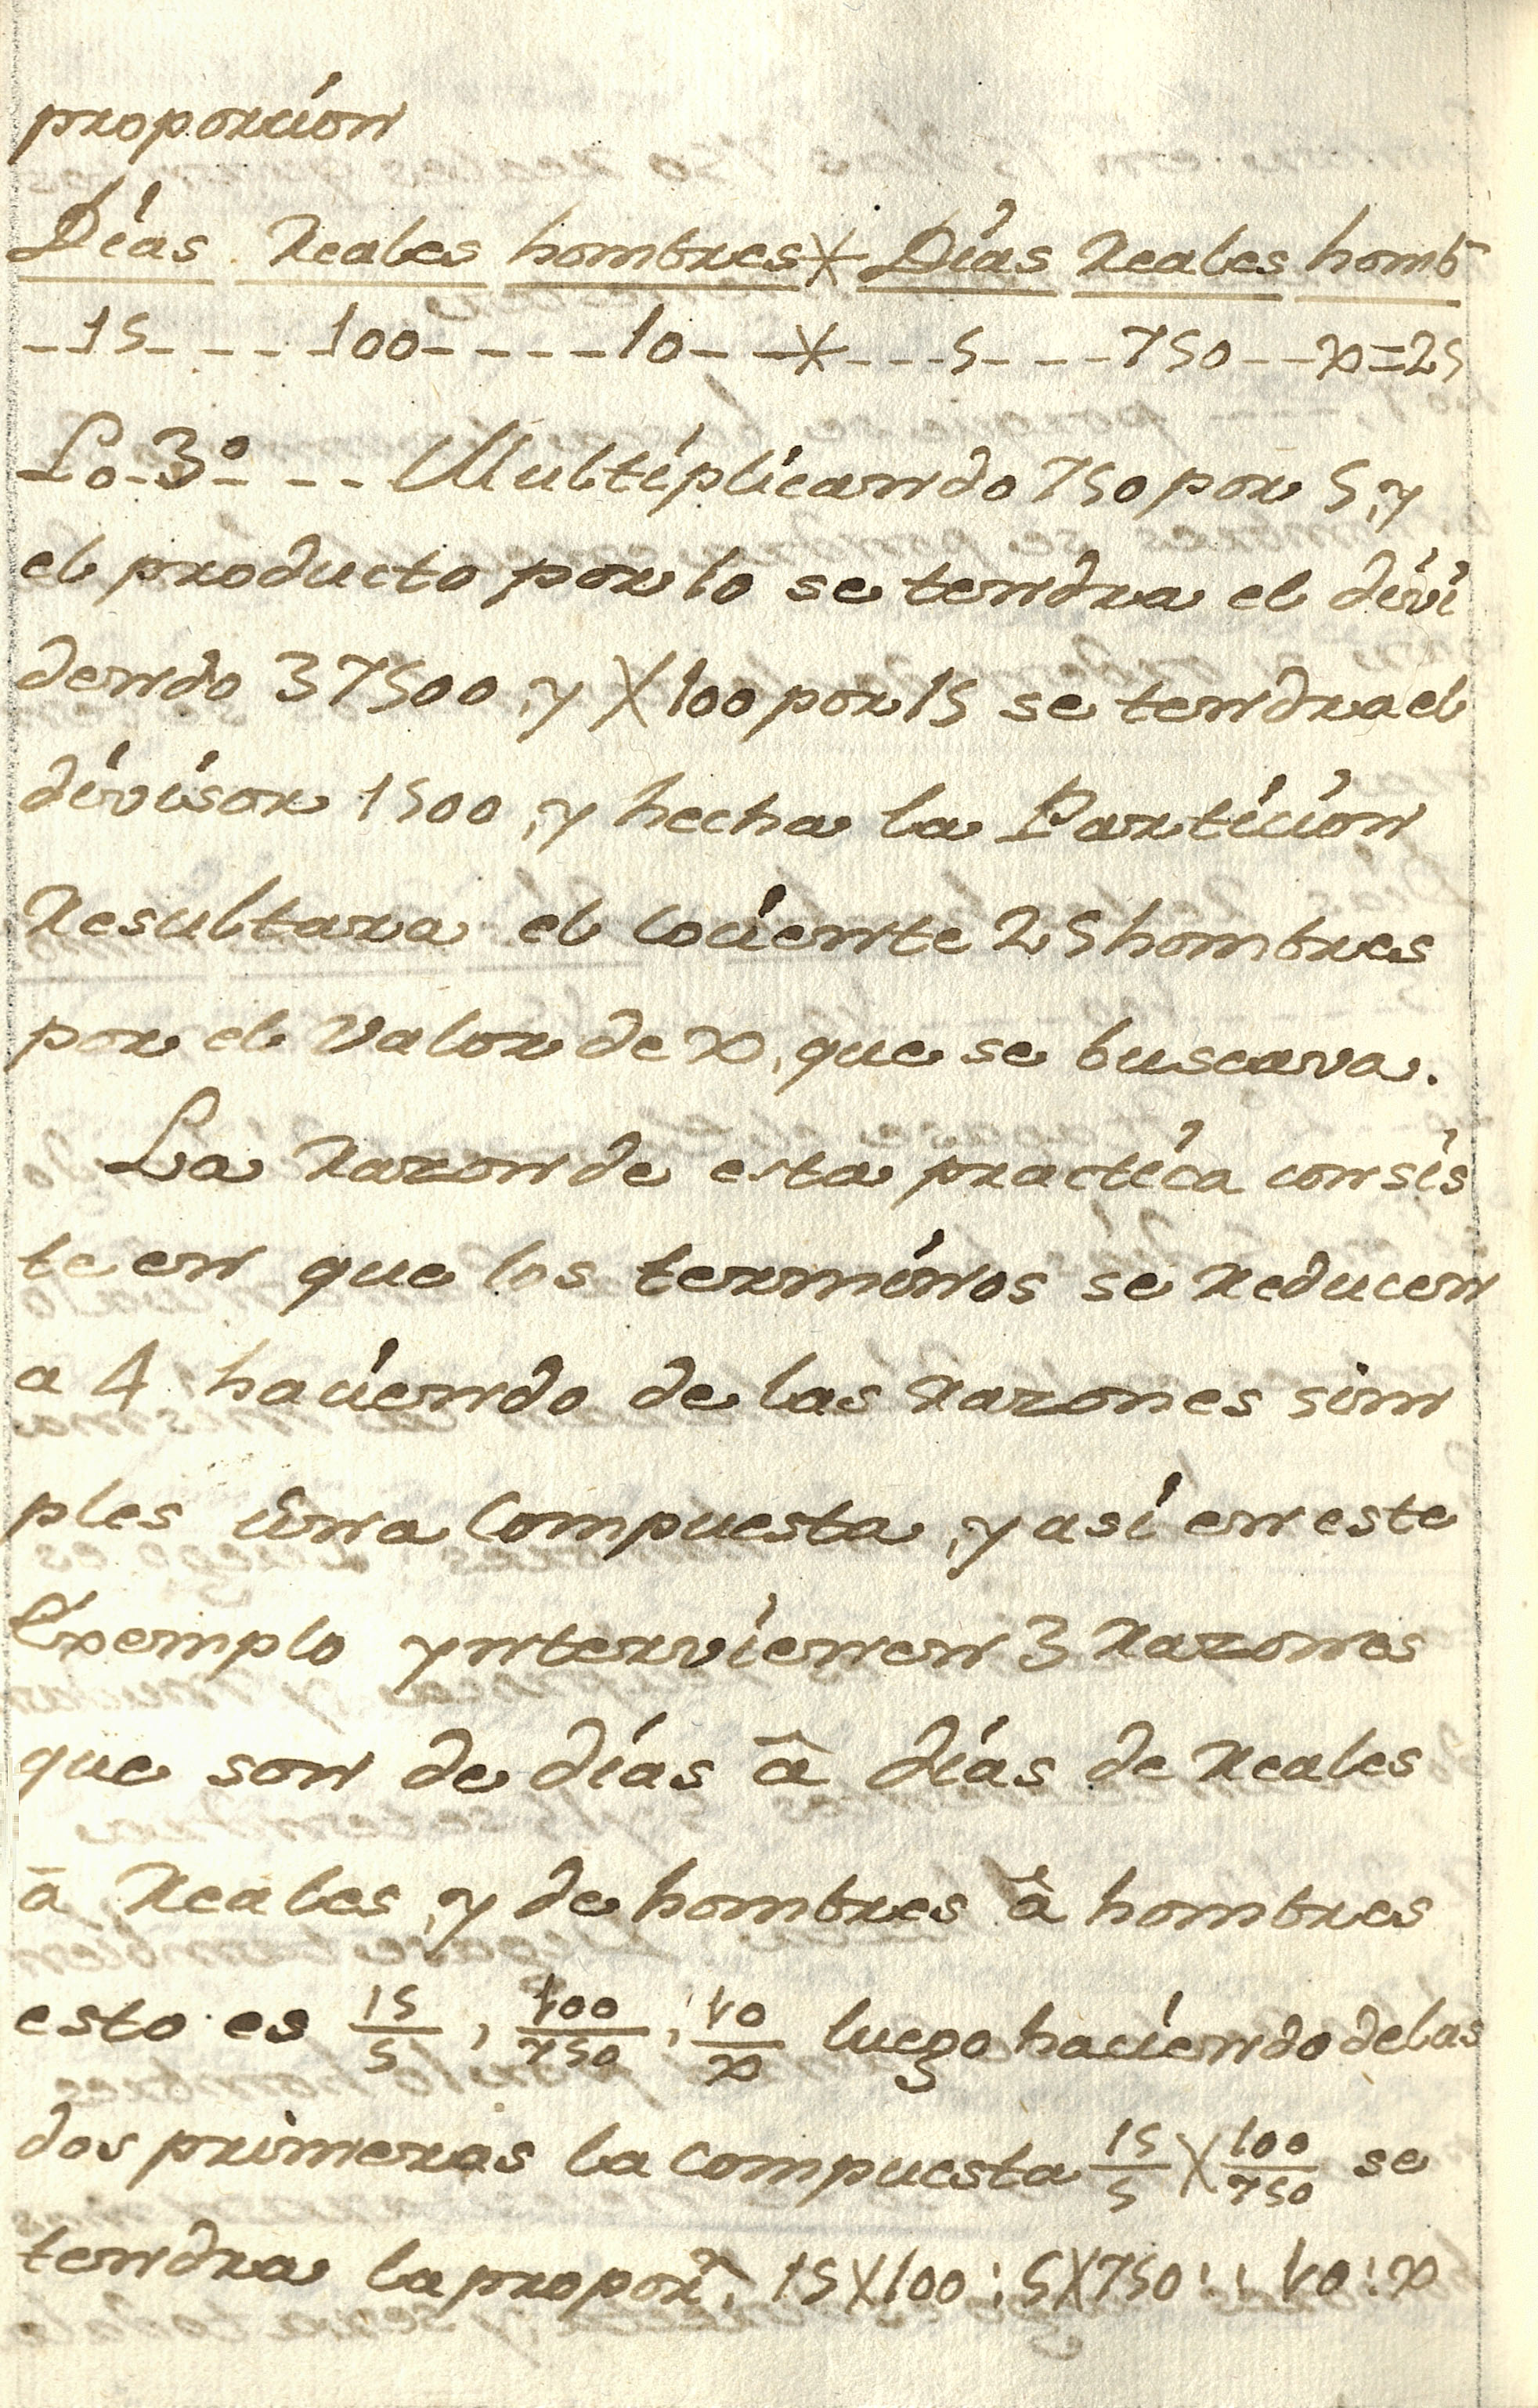 proporcion
Días Reales hombres * Días Reales homb
--15--- -100- - - - -10- - * - - - 5- - - -750 - - x=25
Lo-3º- - - Multiplicando 750 por 5, y
el producto por 10 se tendra el divi
dendo 37500, y X 100 por 15 se tendra el
divisor 1500, y hecha la Particion
Resultara el Cociente 25 hombres
por el Valor de x, que se buscava.
La Razon de esta practica consis
te en que los terminos se Reducen
a 4 haciendo de las Razones sim
ples una Compuesta, y asi en este
Exemplo yntervienen 3 Razones
que son de días â días de Reales
â Reales, y de hombres â hombres
esto es 15/5, 100/750, 10/x luego haciendo de las
dos primeras la compuesta 15/5 X 100/750 se
tendra la proporn. 15X100:5X750::10:x